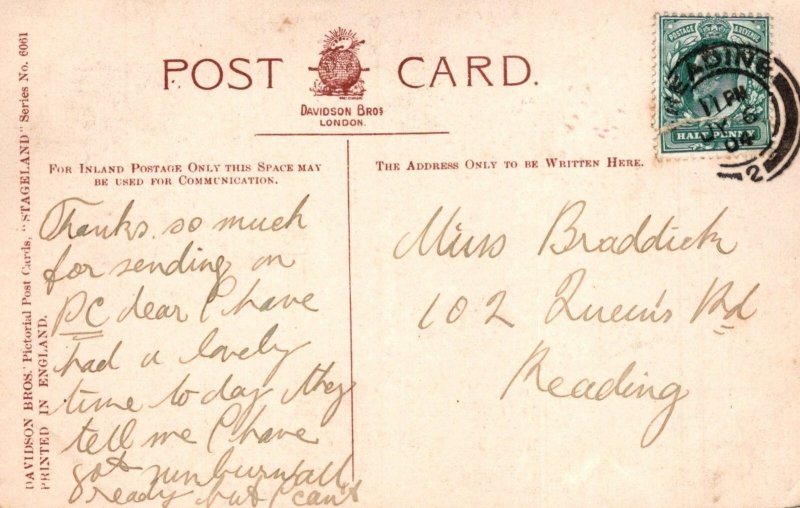 POST CARD.
DAVIDSON BROS
LONDON.
FOR INLAND POSTAGE ONLY THIS SPACE MAY
BE USED FOR COMMUNICATION.
THE ADDRESS ONLY TO BE WRITTEN HERE.
DAVIDSON BROS.' Pictorial Post Cards, "STAGELAND" Series No. 6061
PRINTED IN ENGLAND.
POSTAGE REVENUE
HALFPENNY
READING
11 PM
6
04
2
Thanks so much
for sending on
PC dear I have
had a lovely
time to day they
tell me I have
got sunburnt all
ready but I can't
Miss Braddick
102 Queen's Rd
Reading